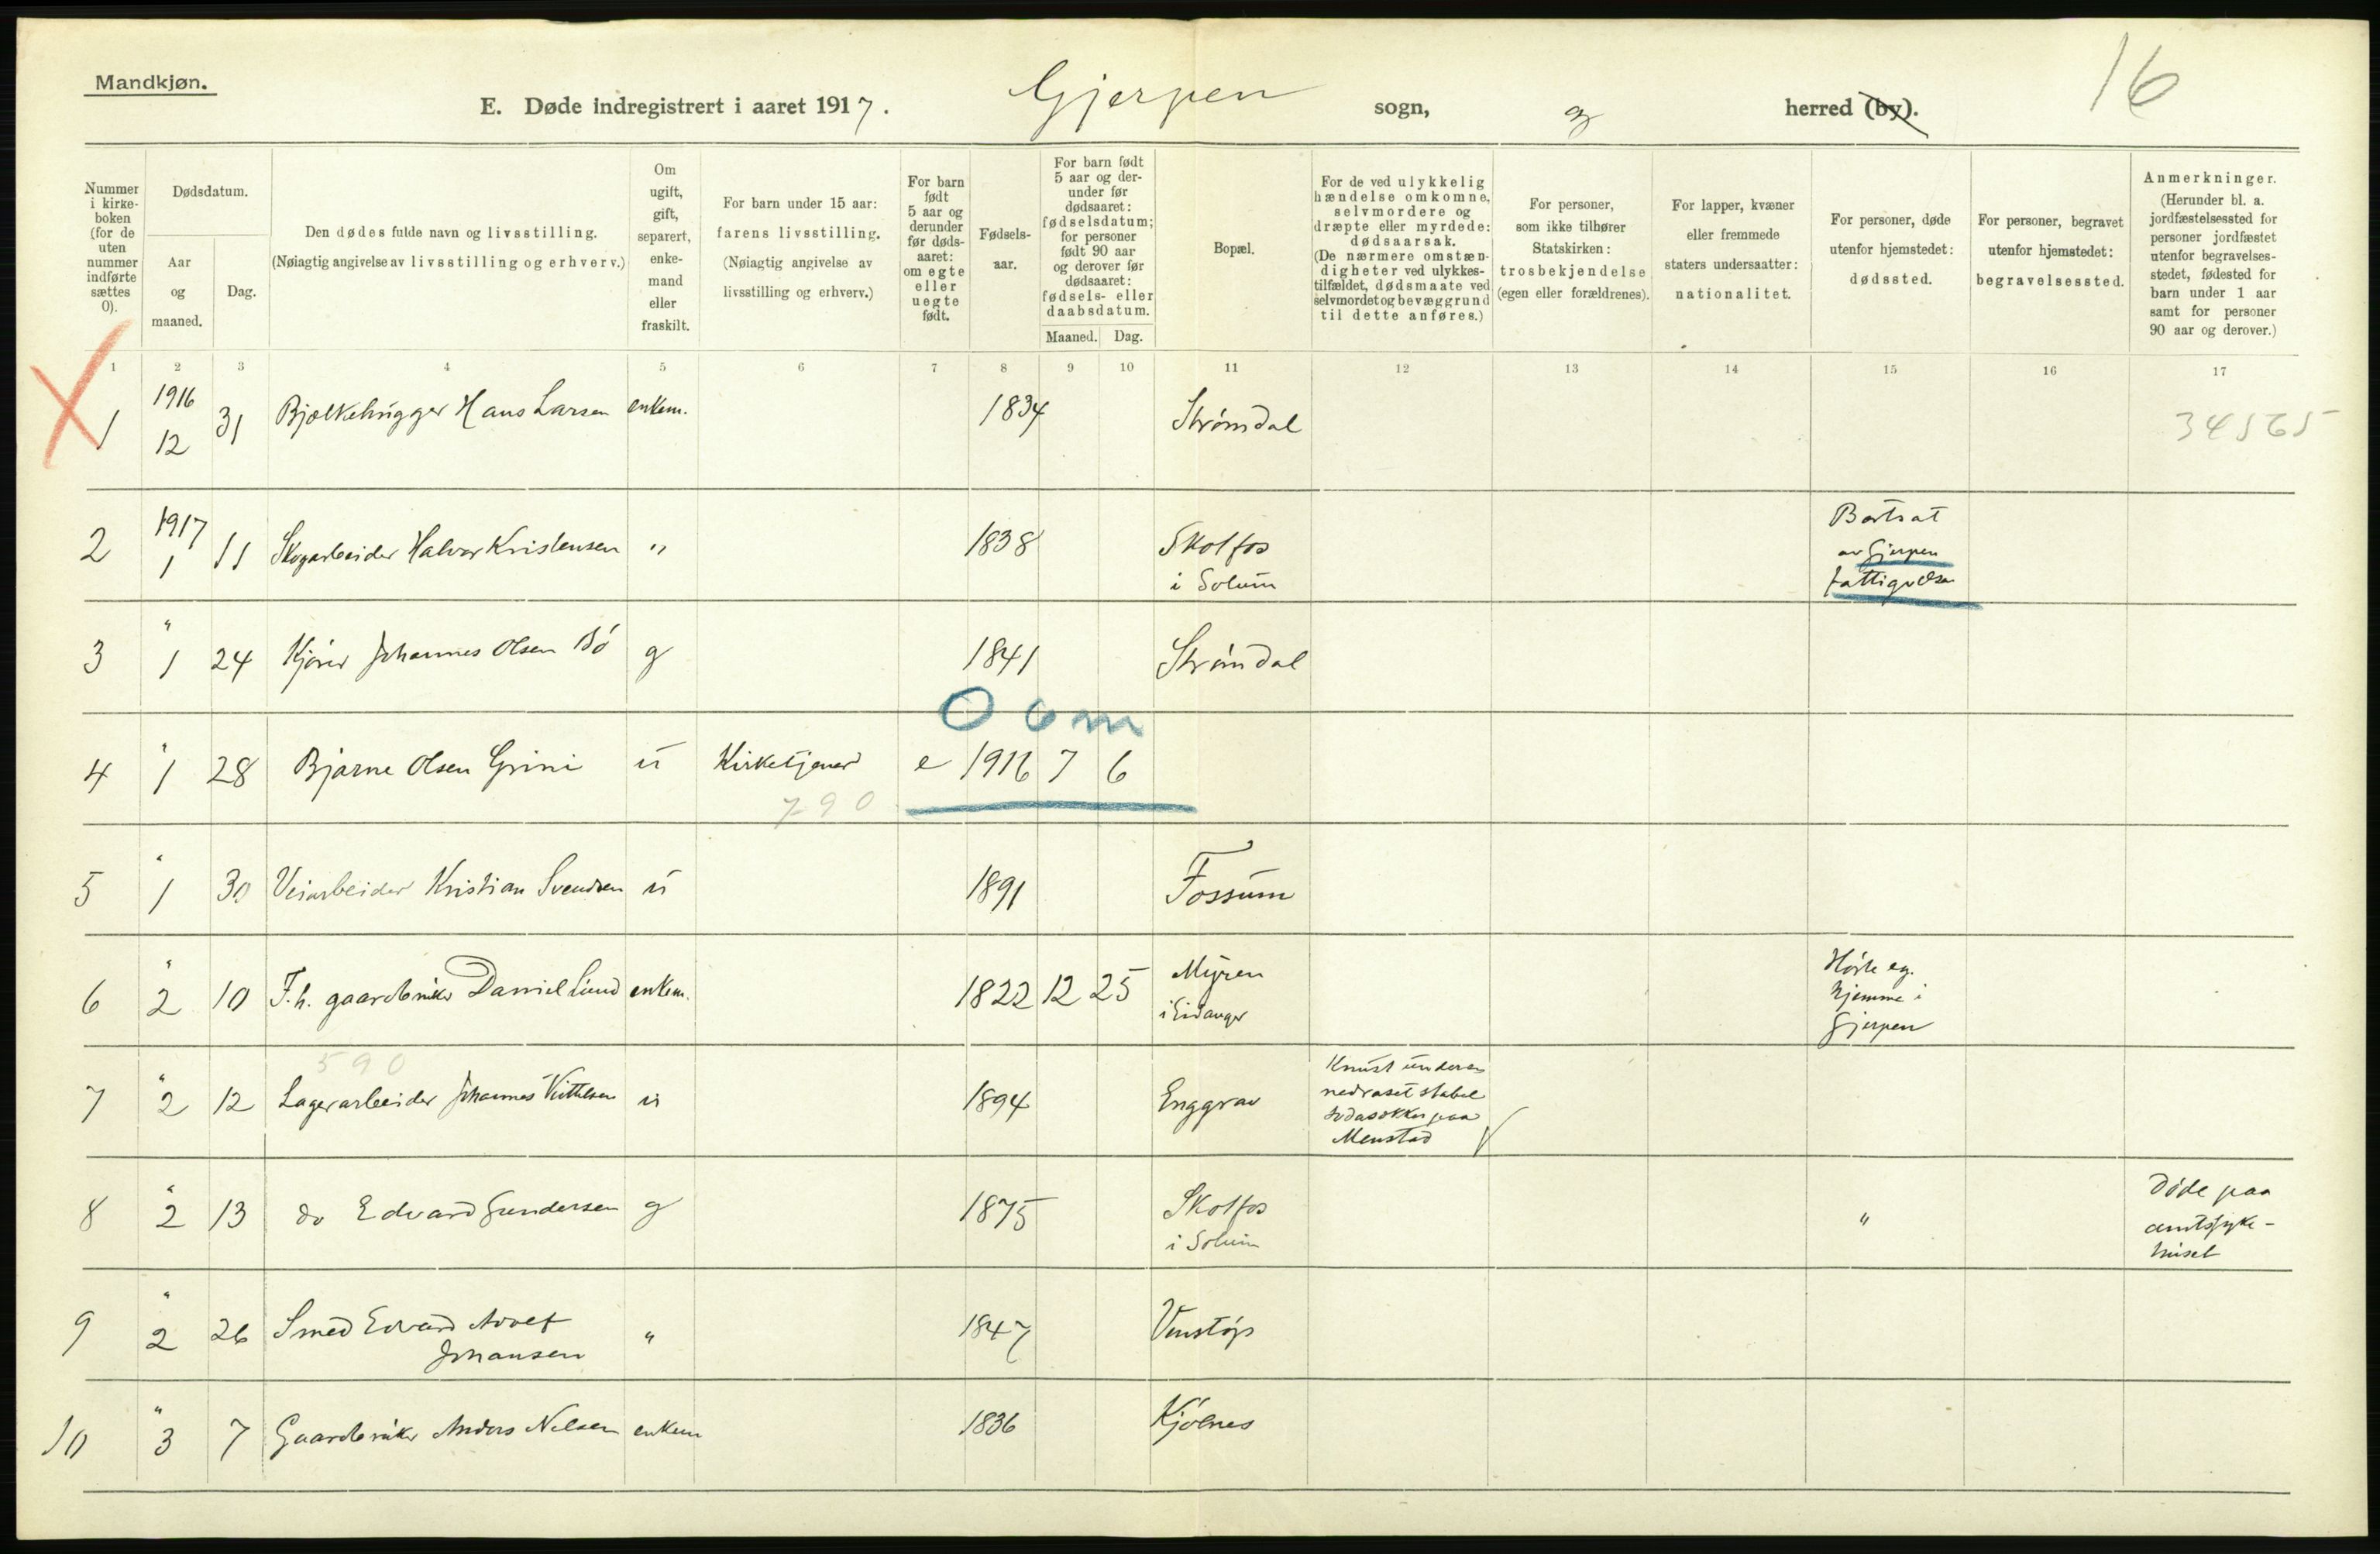 Mandkjøn.
16
E. Døde indregistrert i aaret 1917. Gjerpen sogn, og herred (by).
Nummer i kirke- boken (for de uten nummer indførte sættes 0).
Dødsdatum.
Aar og maaned.
Dag.
Den dødes fulde navn og livsstilling.
(Nøiagtig angivelse av livsstilling og erhverv.)
Om ugift, gift, separert, enke- mand eller fraskilt.
For barn under 15 aar:
farens livsstilling.
(Nøiagtig angivelse av livsstilling og erhverv.)
For barn født 5 aar og derunder før døds- aaret: om egte eller uegte født.
Fødsels- aar.
For barn født 5 aar og der- under før dødsaaret: fødselsdatum; for personer født 90 aar og derover før dødsaaret: fødsels- eller daabsdatum.
Maaned. Dag.
Bopæl.
For de ved ulykkelig hændelse omkomne, selvmordere og dræpte eller myrdede: dødsaarsak. (De nærmere omstæn- digheter ved ulykkes- tilfældet, dødsmaate ved selvmordet og bevæggrund til dette anføres.)
For personer, som ikke tilhører Statskirken: trosbekjendelse (egen eller forældrenes).
For lapper, kvæner eller fremmede staters undersaatter: nationalitet.
For personer, døde utenfor hjemstedet: dødssted.
For personer, begravet utenfor hjemstedet: begravelsessted.
Anmerkninger.
(Herunder bl. a. jordfæstelsessted for personer jordfæstet utenfor begravelses- stedet, fødested for barn under 1 aar samt for personer 90 aar og derover.)
1 2 3 4 5 6 7 8 9 10 11 12 13 14 15 16 17
1 1916 12 31 Bjælkehugger Hans Larsen enkem. 1834 Strømdal 34565
2 1917 1 11 Skogarbeider Halvor Kristensen " 1838 Skotfos i Solum Bortsat av Gjerpen
3 " 1 24 Kjører Johannes Olsen Bö g 1841 Strømdal
0 6 m
4 " 1 28 Bjarne Olsen Grini u Kirketjener e 1916 7 6
790
5 " 1 30 Veiarbeider Kristian Svendsen u 1891 Fossum
6 " 2 10 F.h. gaardbruker Daniel Lund enkem. 1822 12 25 Myren i Eidanger Hørte eg. hjemme i Gjerpen
590
7 " 2 12 Lagerarbeider Johannes Kittilsen u 1894 Enggrav Knust under en nedraset stabel sodasækker paa Menstad
8 " 2 13 do Edvard Gundersen g 1875 Skotfos i Solum " Døde paa amtssyke- huset
9 " 2 26 Smed Edvard Adolf Johansen " 1847 Venstøp
10 " 3 7 Gaardbruker Anders Nilsen enkem 1836 Kjølnes